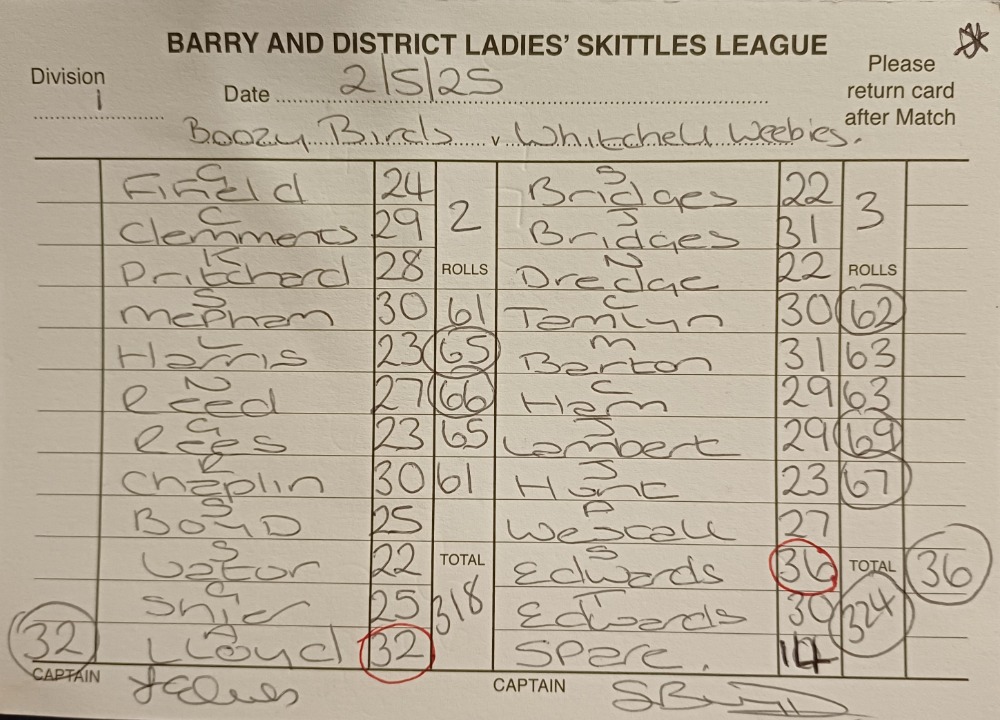 BARRY AND DISTRICT LADIES' SKITTLES LEAGUE
Division 1
Date 2/5/25
Please return card after Match
Boozy Birds v Whitchell Weebies.
G Fifield 24 2 S Bridges 22 3
C Clemments 29 J Bridges 31
K Pritchard 28 ROLLS N Dredge 22 ROLLS
S McPham 30 61 C Tamlyn 30 62
L Harris 23 65 M Barton 31 63
N Reed 27 66 C Ham 29 63
G Rees 23 65 J Lambert 29 69
R Chaplin 30 61 J Hant 23 67
S BOYD 25 P Wescall 27
S 22 TOTAL S Edwards 36 TOTAL 36
G 25 318 T Edwards 30 324
32 A Lloyd 32 Spare. 14
CAPTAIN CAPTAIN